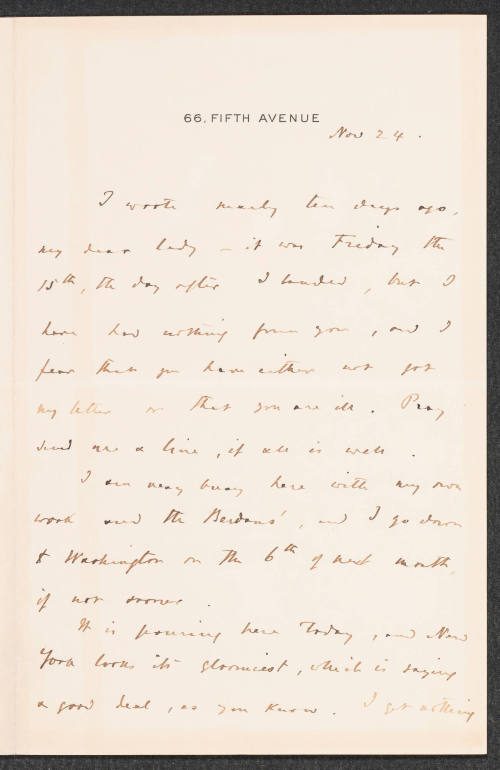 66, FIFTH AVENUE
Nov 24.
I wrote nearly ten days ago,
my dear lady – it was Friday the
15th, the day after I landed, but I
have had nothing from you, and I
fear that you have either not got
my letter or that you are ill. Pray
send me a line, if all is well.
I am very busy here with my own
work and the Berdans', and I go down
to Washington on the 6th of next month,
if not sooner.
It is pouring here today, and New
York looks its gloomiest, which is saying
a good deal, as you know. I get nothing